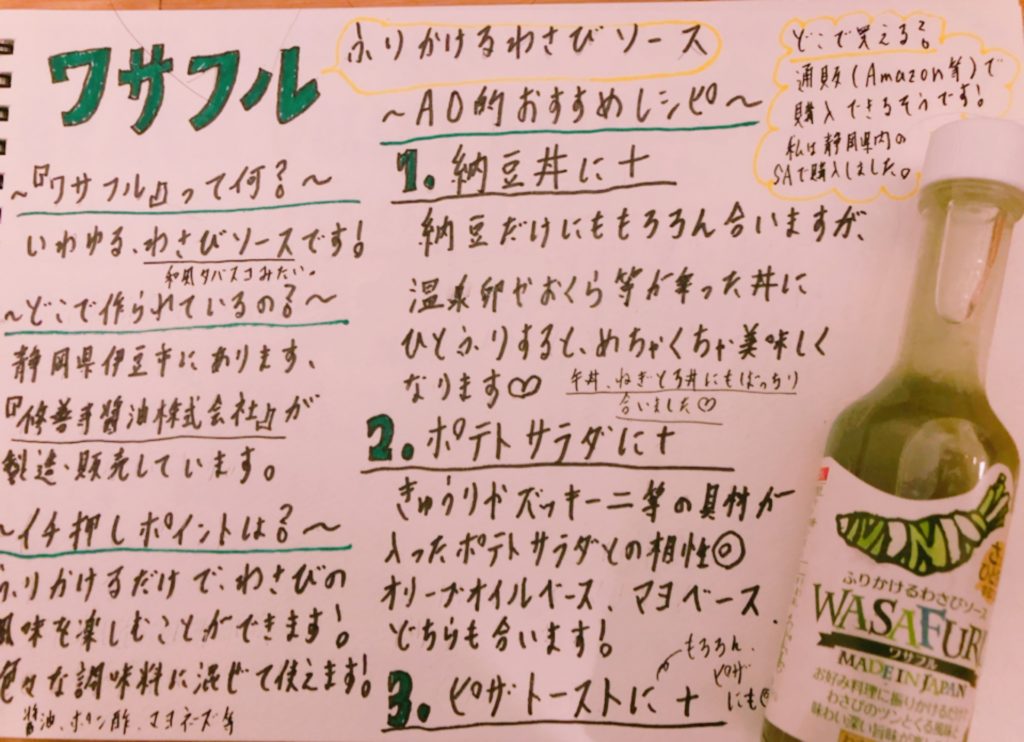 ワサフル
ふりかけるわさびソース
~『ワサフル』って何?~
いわゆる、わさびソースです!
和風タバスコみたい。
~どこで作られているの?~
静岡県伊豆市にあります、
『修善寺醤油株式会社』が
製造・販売しています。
~イチ押しポイントは?~
ふりかけるだけで、わさびの
風味を楽しむことができます!
色々な調味料に混ぜて使えます!
醤油、ポン酢、マヨネーズ等
~AO的おすすめレシピ~
1. 納豆丼に+
納豆だけにももろろん合いますが、
温泉卵やおくら等が乗った丼に
ひとふりすると、めちゃくちゃ美味しく
なります♡
牛丼、ねぎとろ丼にもばっちり
合いました♡
2. ポテトサラダに+
きゅうりやズッキーニ等の具材が
入ったポテトサラダとの相性◎
オリーブオイルベース、マヨベース
どちらも合います!
3. ピザトーストに+
もろろん、
ピザ
にも◎
どこで買える?
通販(Amazon等)で
購入できるそうです!
私は静岡県内の
SAで購入しました。
ふりかけるわさびソース
WASAFURU
ワサフル
MADE IN JAPAN
お好み料理に振りかけるだけ!
わさびのツンとくる風味と
味わい深い旨味が